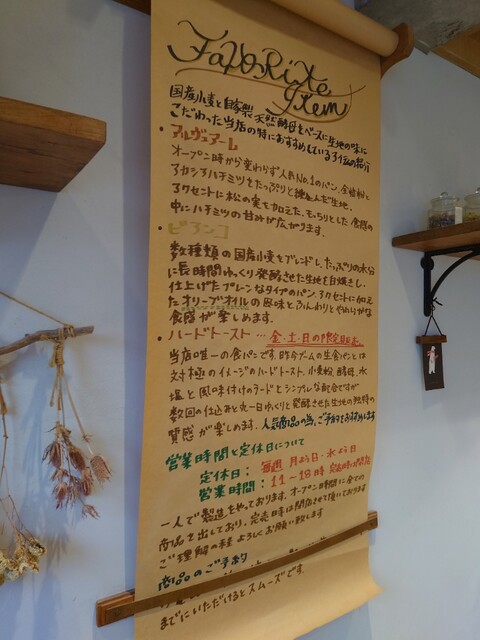 FavoRite
Item
国産小麦と自家製天然酵母をベースに生地の味に
こだわった当店の特におすすめしている子達の紹介
・アルヴェアーレ
オープン時から変わらず人気No.1のパン。全粒粉と
アカシアハチミツをたっぷりと練込んだ生地。
アクセントに松の実も加えた、もっちりとした食感の
中にハチミツの甘みが広がります。
・ビアンコ
数種類の国産小麦をブレンドし、たっぷりの水分
に長時間ゆっくり発酵させた生地を白焼きし、
仕上げたプレーンなタイプのパン。アクセントに加え
たオリーブオイルの風味とふんわりとやわらかな
食感が楽しめます。
・ハードトースト…金・土・日の限定販売
当店唯一の食パンです。昨今ブームの生食パンとは
対極のイメージのハードトースト。小麦粉、酵母、水
塩と風味付けのラードとシンプルな配合ですが
数回の仕込あと丸一日ゆっくりと発酵させた生地の独特の
質感が楽しめます。人気商品の為、ご予約をおすすめします
営業時間と定休日について
定休日：毎週 月よう日・水よう日
営業時間：11〜18時 完売時は閉店
一人で製造をやっております。オープン時間に全ての
商品を出しており、完売時は閉店させて頂いております
ご理解の程 よろしくお願い致します
商品のご予約
までにいただけるとスムーズです。